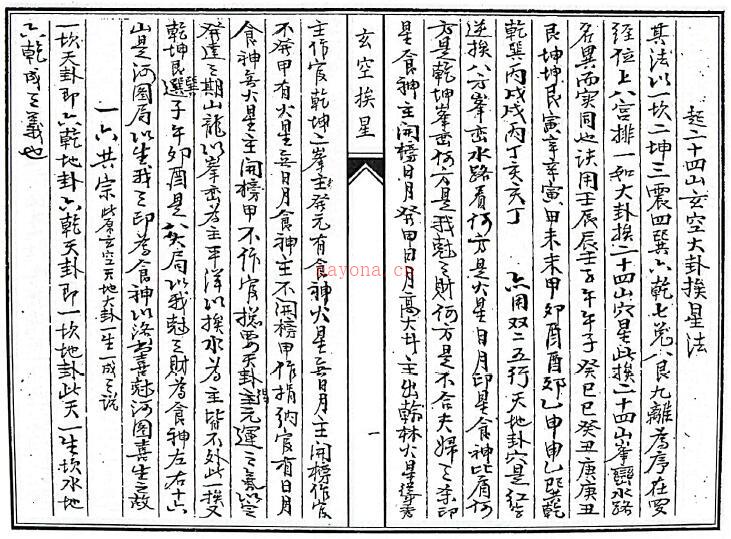 起二十四山玄空大卦挨星法
其法以一坎二坤三震四巽六乾七兌八艮九離為序在
經位上八宮排一如大卦挨二十四山穴星此挨二十四山峯巒水路
名異而實同也訣用壬辰辰壬子午午子癸巳巳癸丑庚庚丑
艮坤坤艮寅辛辛寅甲未未甲卯酉酉卯乙申申乙巽乾
乾巽丙戌戌丙丁亥亥丁 亦用双二五行天地卦穴是紅字
逆挨八方峯巒水路看何方是火星日月印星食神比肩何
方是乾坤峯巒何方是我尅之財何方是不合夫婦之
星食神主開榜日月發甲日月高大斗主出翰林火星
玄空挨星
一
主作官乾坤二峯主發元有食神火星無日月主開榜作官
不發甲有火星無日月食神主不開榜甲作捐納官有日月
食神無火星主開榜甲不作官總要天卦主元運之義以定
發達之期山龍以峯巒為主平洋以挨水為主皆不外此一挨又
乾坤艮巽子午卯酉是八大局以我尅之財為食神左右十六
山是河圖局以生我之印為食神以洛書喜尅河圖喜生之故
一六共宗 此察玄空天地大卦一生一成之說
一坎天卦即六乾地卦六乾天卦即一坎地卦此天一生坎水地
六乾成之義也
nayona.cn